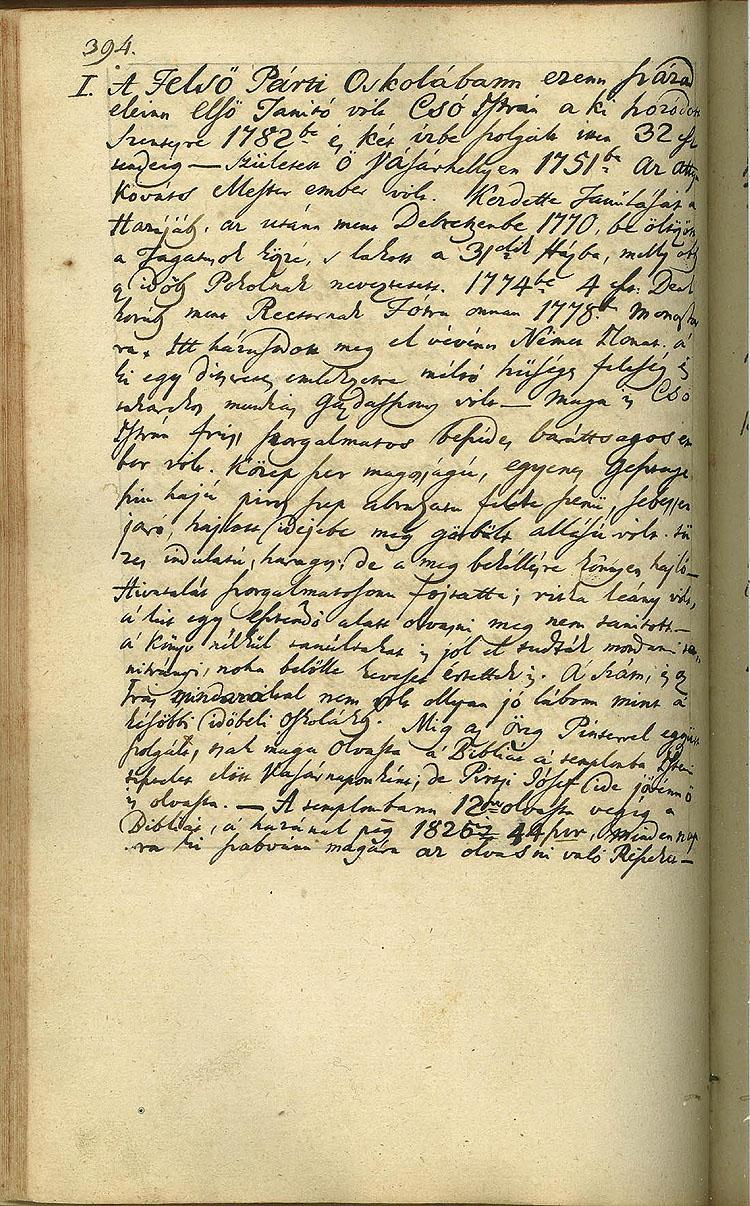 394.
I. A Felső Párti Oskolábann ezenn száza
eleinn első Tanító vólt Csó István a ki hozódott
Szentesre 1782be és két izbe szolgált itten 32 est
tendeig — Született ő Vásárhellyen 1751be az attya
Kováts Mester ember vólt. Kezdette Tanúlását a
Hazájáb. az utánn ment Debretzenbe 1770. be öltözött
a Togatusok közzé, s lakott a 31dik Házba, melly
időb Pokolnak neveztetett. 1774be 4 Deák
koráb ment Rectornak Tótra onnan 1778b Monost
ra. Itt házasodott meg el vévénn Német Ilonát. a
ki egy ditséretes emlékezetre méltó hűséges feleség és
takarékos munkás Gazdasszony vólt — Maga is Csó
István friss, szorgalmatos beszédes baráttságos em
ber vólt. Közép szer magasságú, egyenes
szin hajú piros szép ábrázatú fekete szemű, sebessen
járó, hajlott idejébe meg görbült állású vólt. tü
zes indulatú, haragos; de a meg békéllésre könnyen hajló —
Hivatalát szorgalmatosonn fojtatta; ritka leány vólt,
a kit egy esztendő alatt olvasni meg nem tanított —
a könyv nélkűl tanúltakat is jól el tudták mondani
nitványi, noha belőlle keveset értettek is. A szám, és az
Irás mindazáltal nem vólt ollyan jó lábonn mint a
későbbi időbeli Oskolákb. Mig az Öreg Pinterrel együtt
szolgált, tsak maga olvasta a Bibliát a templomba Isteni
tisztelet előtt Vasárnaponként, de Pirosi Jósef ide jövénn ő
is olvasta. — A templombann 12szer olvasta végig a
Bibliát, a háznál pég 1826ig 44szer, Minden nap
ra ki szabvánn magára az olvasni való Részeket —